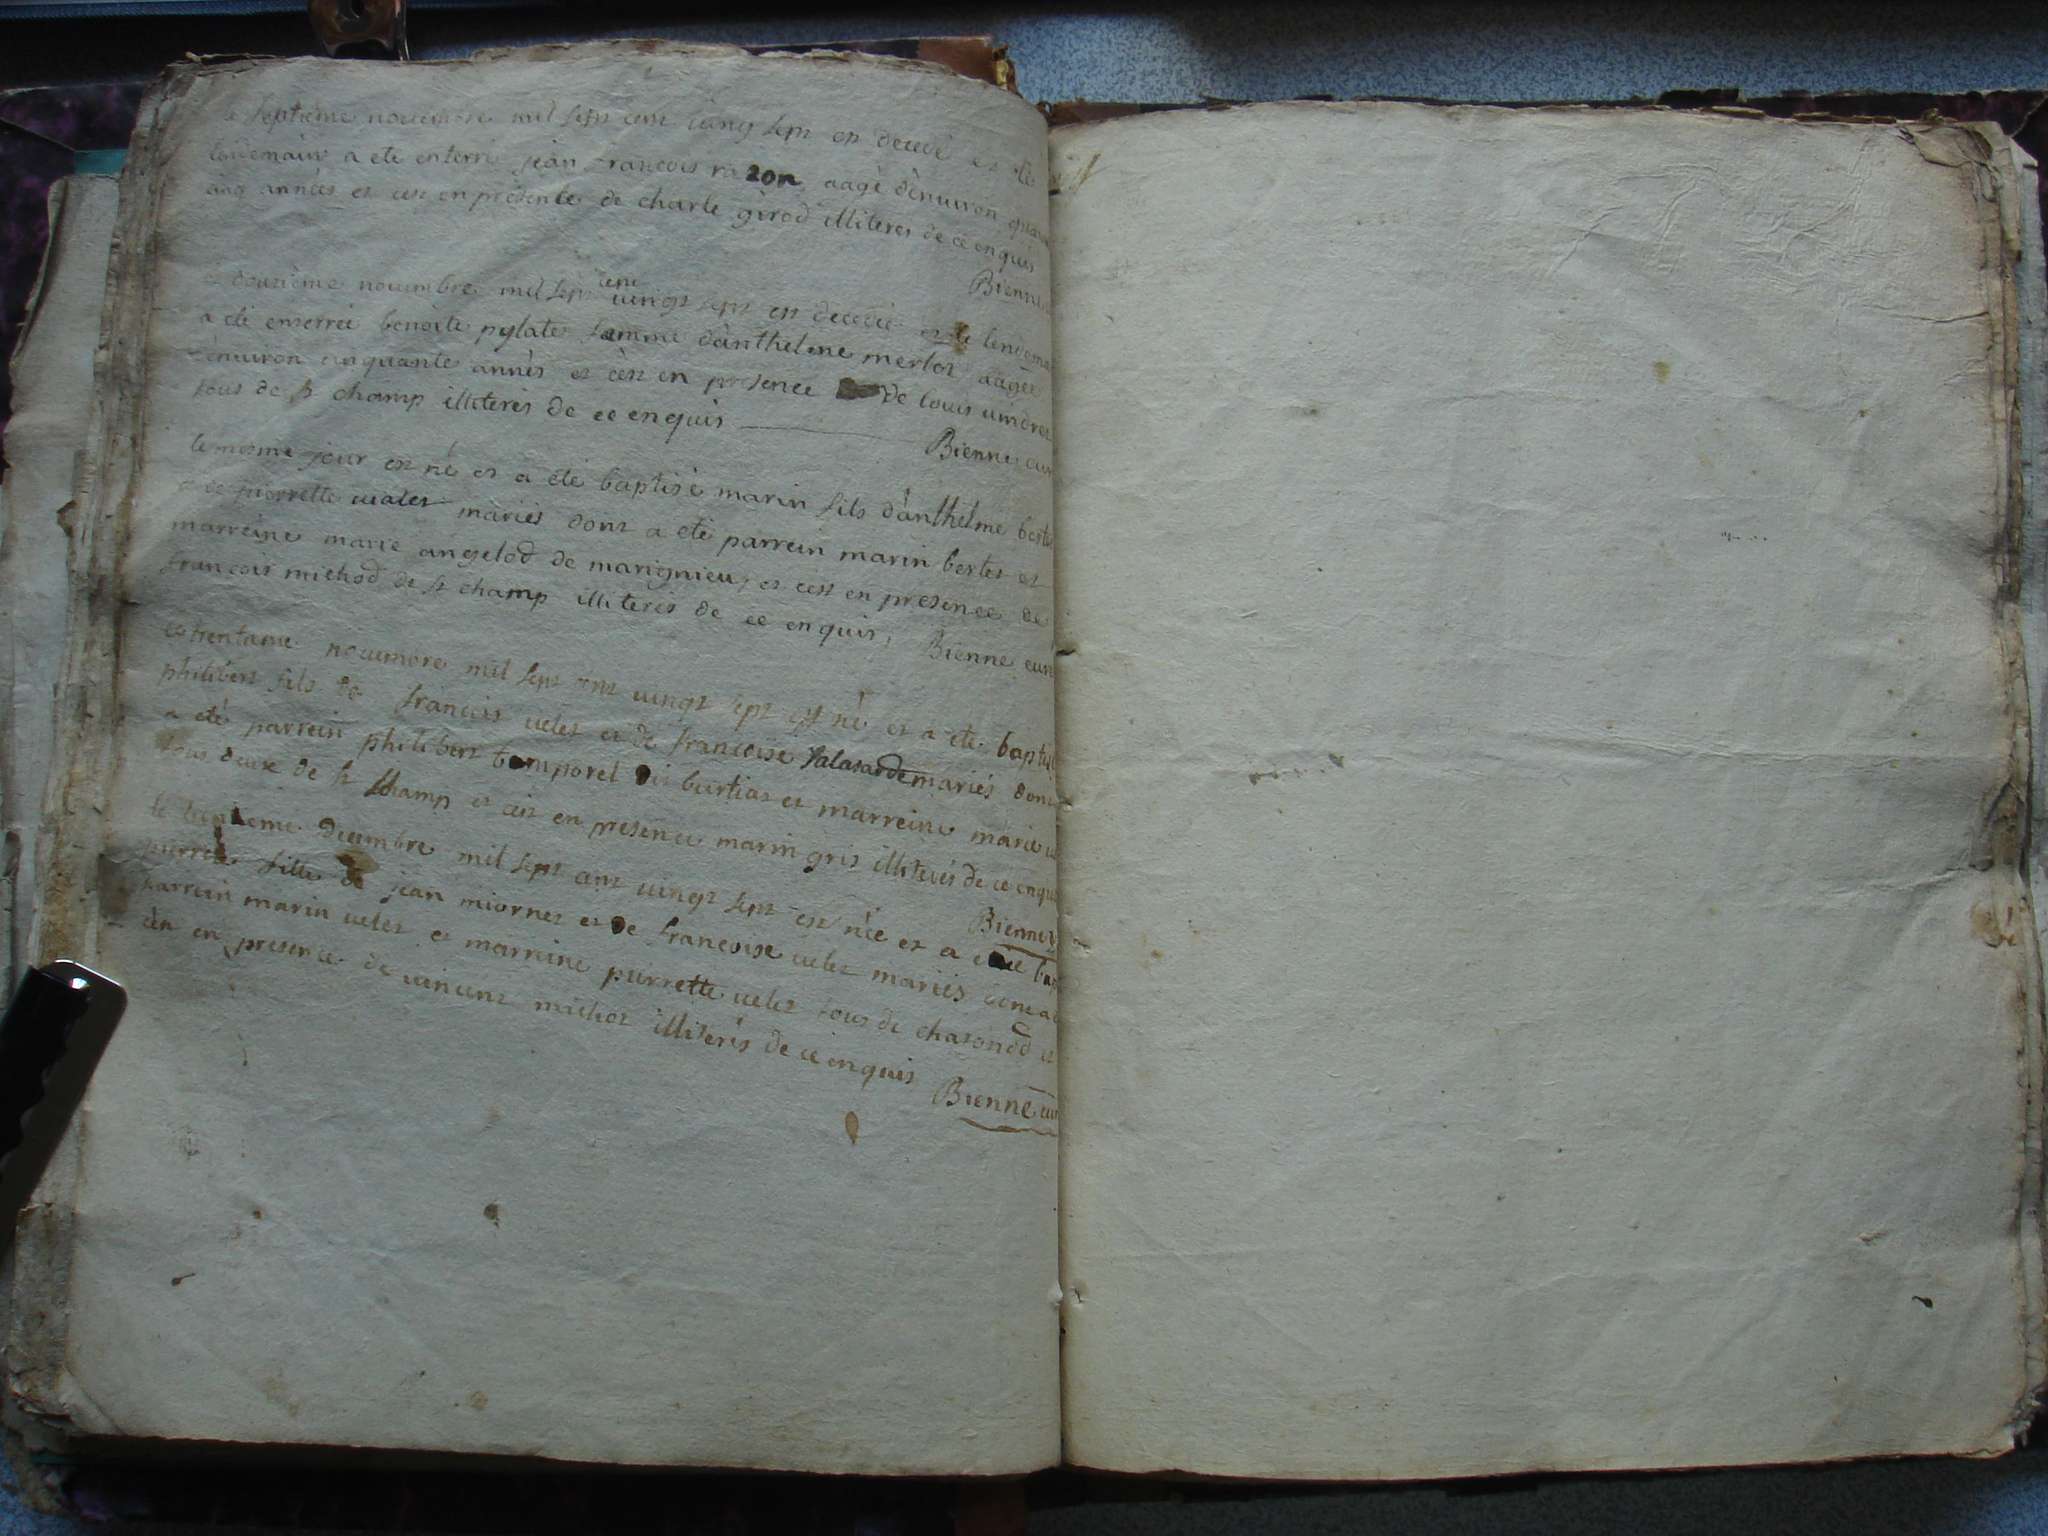 le septieme nouembre mil sept cent uingt sept est decede et le
landemain a ete enterré jean francois razon aagé denuiron
années et cest en presente de charle girod illiteres de ce enquis
Bienne
le douzieme nouembre mil sept cent uingt sept est decedée et le lendemain
a eté enterreé benoite pylate femme danthelme merlot aagée
denuiron cinquante annés et cest en presence de louis uindret
tous de st champ illiteres de ce enquis Bienne cur
le mesme jour est né et a eté baptisé marin fils danthelme bertet
et de pierrette ualet mariés dont a eté parrein marin bertet et
marreine marie angelod de marignieu, et cest en presence de
francois michod de st champ illiterés de ce enquis, Bienne curé
le trentieme nouembre mil sept cent uingt sept est né et a eté baptisé
philibert fils de francois uelet et de francoise salasarde mariés dont
a eté parrein philibert temporel dit burtiat et marreine marie
tous deux de st champ et cest en presence marin gris illiterés de ce enquis
Bienne
le decembre mil sept cent uingt sept est née et a eté bap
pierrette fille de jean miornet et de francoise uelet mariés dont a
parrein marin uelet et marreine pierrette uelet tous de chasonod et
cest en presence de uincent michot illiterés de ce enquis Bienne cur